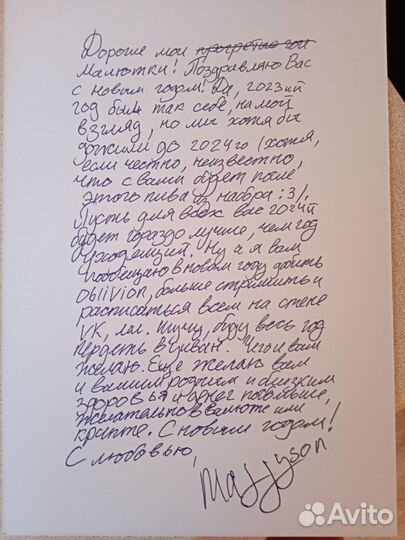 Дорогие мои прогретые гои
Малютки! Поздравляю Вас
с новым годом! Да, 2023ий
год был так себе, на мой
взгляд, но мы хотя бы
дожили до 2024го (хотя,
если честно, неизвестно,
что с вами будет после
этого пива из набора :3).
Пусть для всех вас 2024й
будет гораздо лучше, чем год
уходящий. Ну а я вам
пообещаю в новом году добить
Oblivion, больше стримить и
расписаться всем на стене
VK, лол. Шучу, буду весь год
пердеть в диван. Чего и вам
желаю. Еще желаю вам
и вашим родным и близким
здоровья и денег побольше,
желательно в валюте или
крипте. С новым годом!
С любовью,
Maddyson
Avito